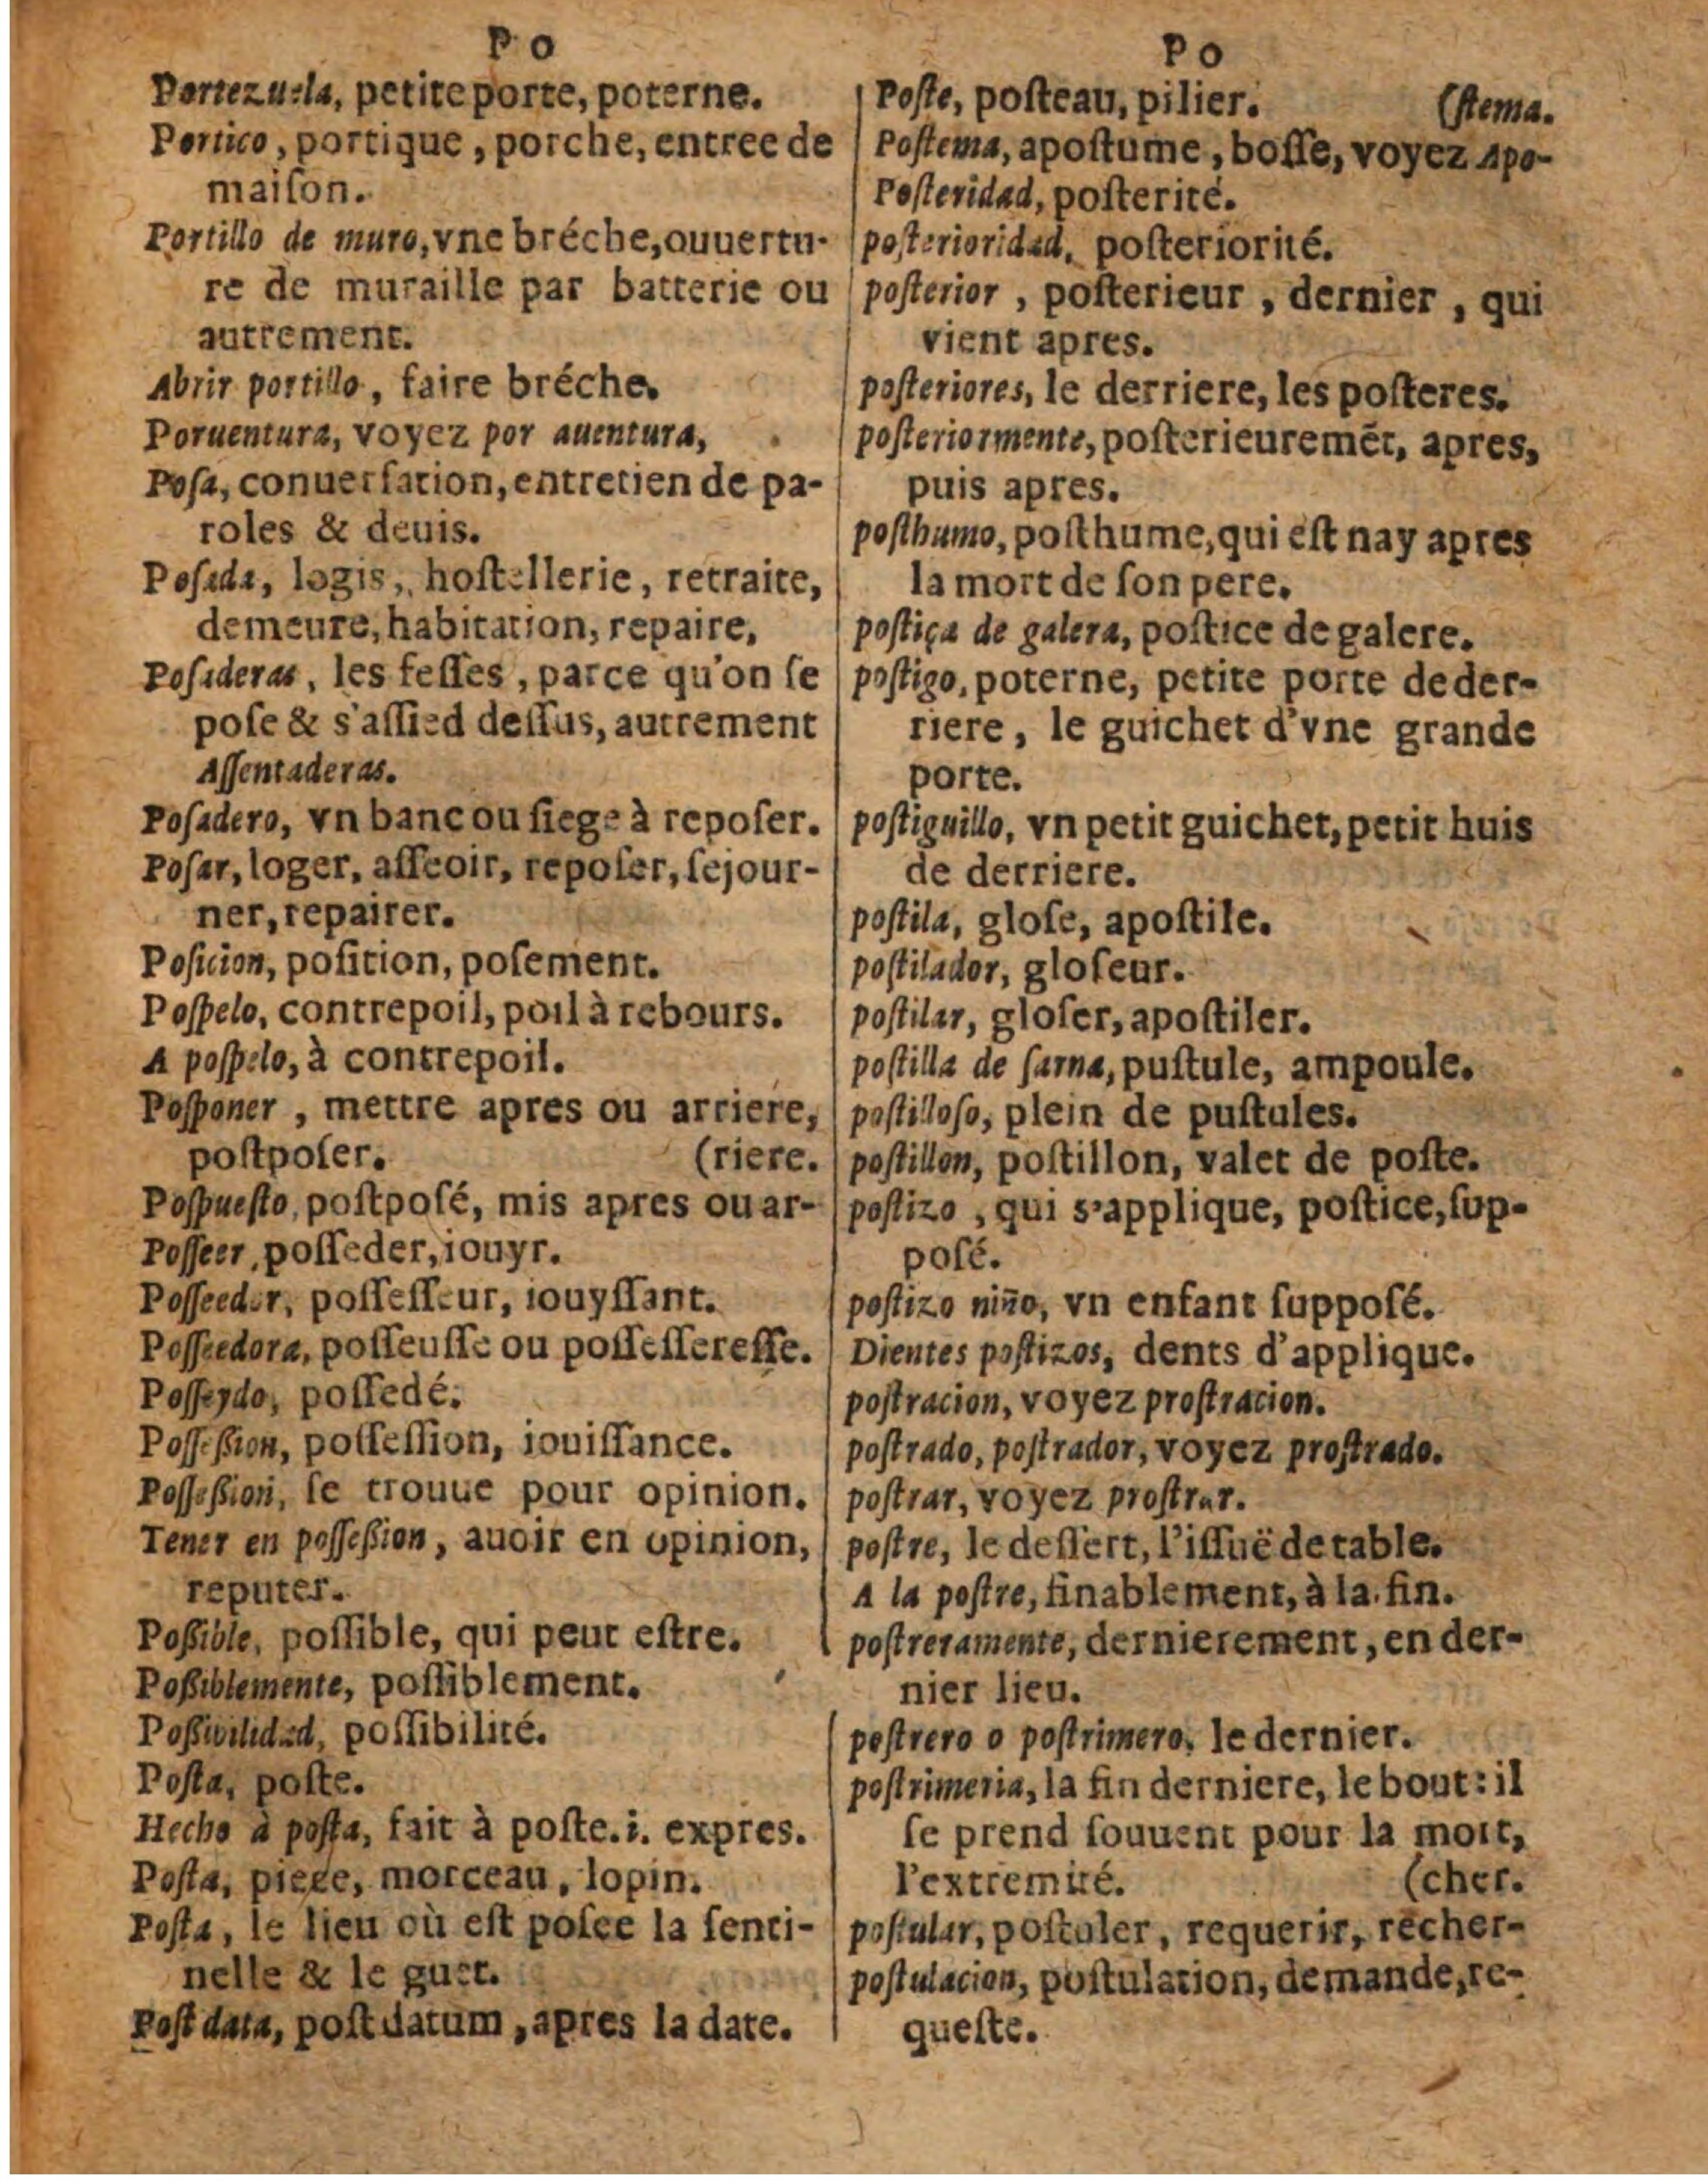 P o
Portezuela, petite porte, poterne.
Portico, portique, porche, entree de
maiſon.
Portillo de muro, vne bréche, ouuertu-
re de muraille par batterie ou
autrement.
Abrir portillo, faire bréche.
Poruentura, voyez por auentura,
Poſa, conuerſation, entretien de pa-
roles & deuis.
Poſada, logis, hoſtellerie, retraite,
demeure, habitation, repaire,
Poſaderas, les feſſes, parce qu'on ſe
poſe & s'aſſied deſſus, autrement
Aſſentaderas.
Poſadero, vn banc ou ſiege à repoſer.
Poſar, loger, aſſeoir, repoſer, ſejour-
ner, repairer.
Poſicion, poſition, poſement.
Poſpelo, contrepoil, poil à rebours.
A poſpelo, à contrepoil.
Poſponer, mettre apres ou arriere,
poſtpoſer. (riere.
Poſpueſto, poſtpoſé, mis apres ou ar-
Poſſeer, poſſeder, iouyr.
Poſſeedor, poſſeſſeur, iouyſſant.
Poſſeedora, poſſeuſſe ou poſſeſſereſſe.
Poſſeydo, poſſedé.
Poſſeßion, poſſeſſion, iouiſſance.
Poſſeßion, ſe trouue pour opinion.
Tener en poſſeßion, auoir en opinion,
reputer.
Poßible, poſſible, qui peut eſtre.
Poßiblemente, poſſiblement.
Poßiuilidad, poſſibilité.
Poſta, poſte.
Hecho à poſta, fait à poſte. i. expres.
Poſta, piece, morceau, lopin.
Poſta, le lieu où eſt poſee la ſenti-
nelle & le guet.
Poſt data, poſt datum, apres la date.
P o
Poſte, poſteau, pilier. (ſtema.
Poſtema, apoſtume, boſſe, voyez Apo-
Poſteridad, poſterité.
poſterioridad, poſteriorité.
poſterior, poſterieur, dernier, qui
vient apres.
poſteriores, le derriere, les poſteres.
poſteriormente, poſterieuremẽt, apres,
puis apres.
poſthumo, poſthume, qui eſt nay apres
la mort de ſon pere.
poſtiça de galera, poſtice de galere.
poſtigo, poterne, petite porte de der-
riere, le guichet d'vne grande
porte.
poſtiguillo, vn petit guichet, petit huis
de derriere.
poſtila, gloſe, apoſtile.
poſtilador, gloſeur.
poſtilar, gloſer, apoſtiler.
poſtilla de ſarna, puſtule, ampoule.
poſtilloſo, plein de puſtules.
poſtillon, poſtillon, valet de poſte.
poſtizo, qui s'applique, poſtice, ſup-
poſé.
poſtizo niño, vn enfant ſuppoſé.
Dientes poſtizos, dents d'applique.
poſtracion, voyez proſtracion.
poſtrado, poſtrador, voyez proſtrado.
poſtrar, voyez proſtrar.
poſtre, le deſſert, l'iſſuë de table.
A la poſtre, finablement, à la fin.
poſtreramente, dernierement, en der-
nier lieu.
poſtrero o poſtrimero, le dernier.
poſtrimeria, la fin derniere, le bout: il
ſe prend ſouuent pour la mort,
l'extremité. (cher.
poſtular, poſtuler, requerir, recher-
poſtulacion, poſtulation, demande, re-
queſte.